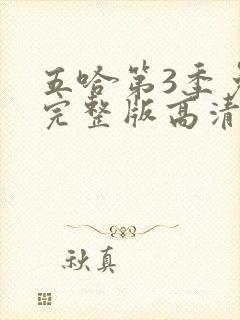 五哈第3季
完整版高清
秋真